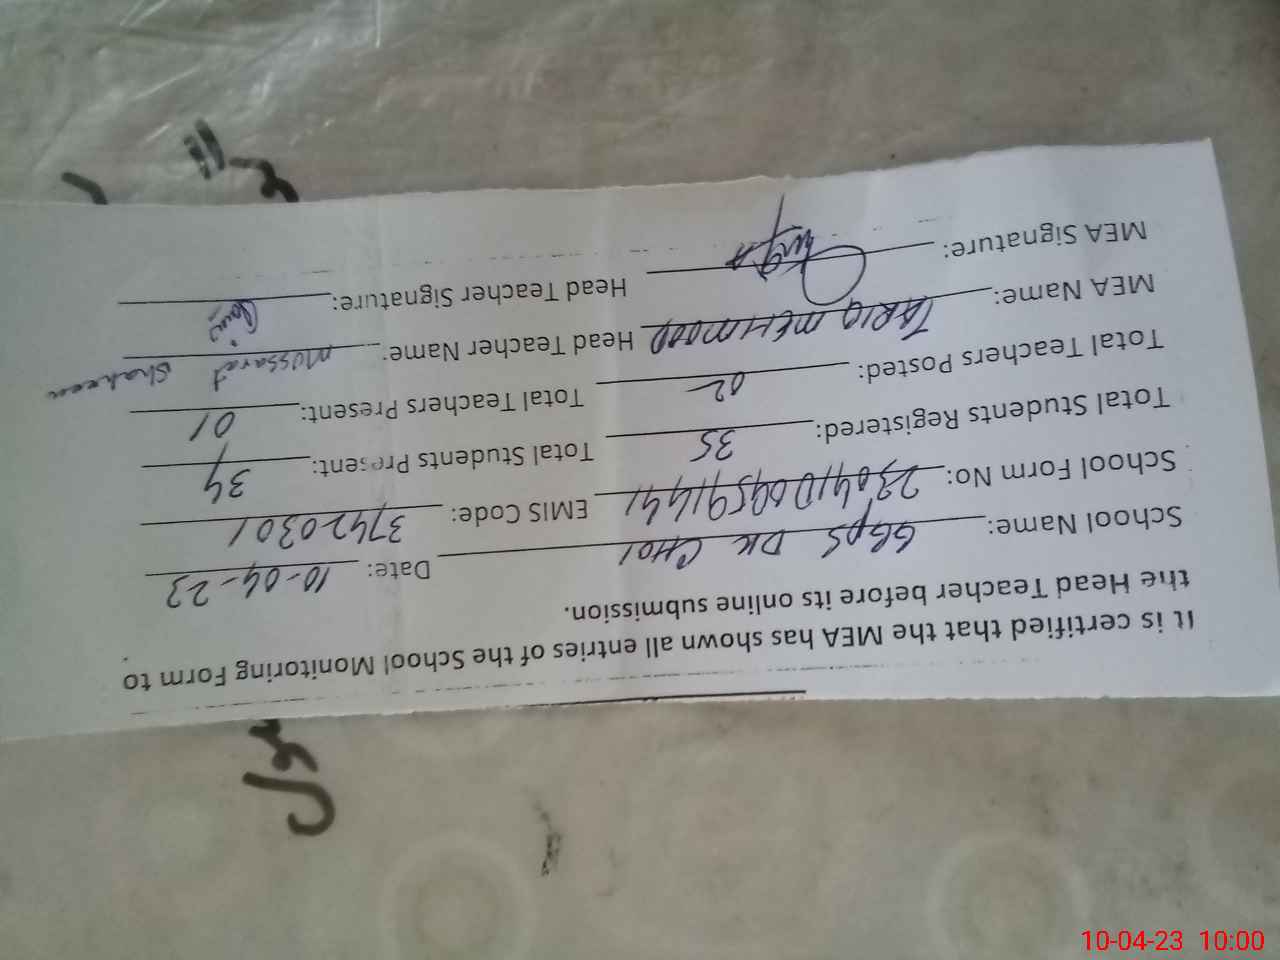 It is certified that the MEA has shown all entries of the School Monitoring Form to
the Head Teacher before its online submission.
School Name: GGPS DK CHOI Date: 10-04-23
School Form No: EMIS Code: 37420301
Total Students Registered: 35 Total Students Present: 34
Total Teachers Posted: 02 Total Teachers Present: 01
MEA Name: TARIQ MEHMOOD Head Teacher Name: Mussarat Shaheen
MEA Signature: Head Teacher Signature:
10-04-23 10:00